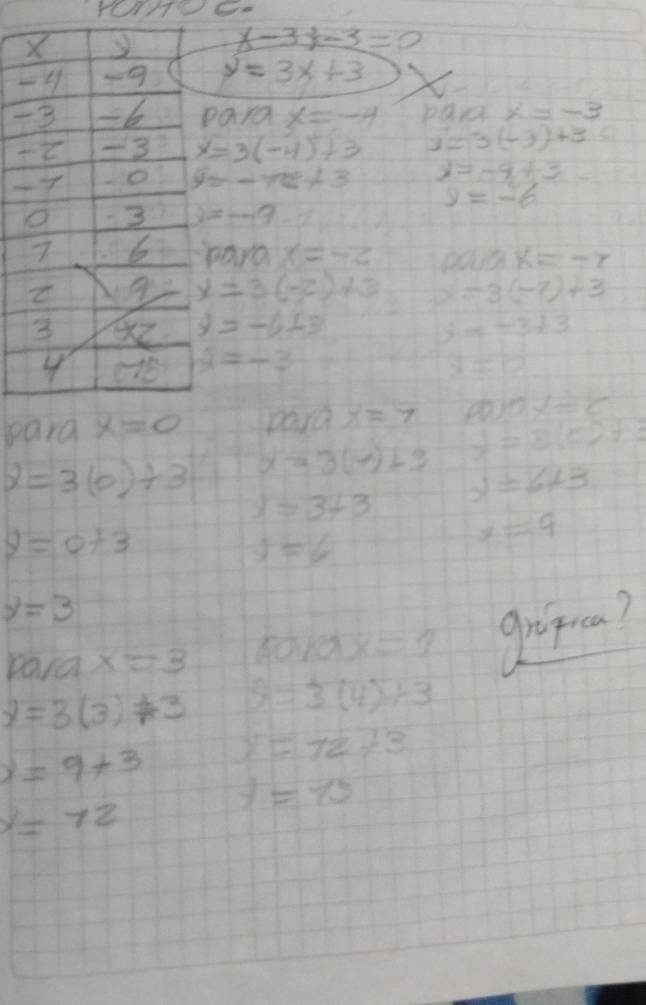 Punto c.
x y
-4 -9
-3 -6
-2 -3
-1 0
0 3
1 6
2 9
3 12
4 15
x-3y-3=0
y=3x+3
para x=-4
y=3(-4)+3
y=-12+3
y=-9
para x=-3
y=3(-3)+3
y=-9+3
y=-6
para x=-2
y=3(-2)+3
y=-6+3
y=-3
para x=-1
y=3(-1)+3
y=-3+3
y=0
para x=0
y=3(0)+3
y=0+3
y=3
para x=1
y=3(1)+3
y=3+3
y=6
para x=2
y=3(2)+3
y=6+3
y=9
gráfica?
para x=3
y=3(3)+3
y=9+3
y=12
para x=
y=3(4)+3
y=12+3
y=15